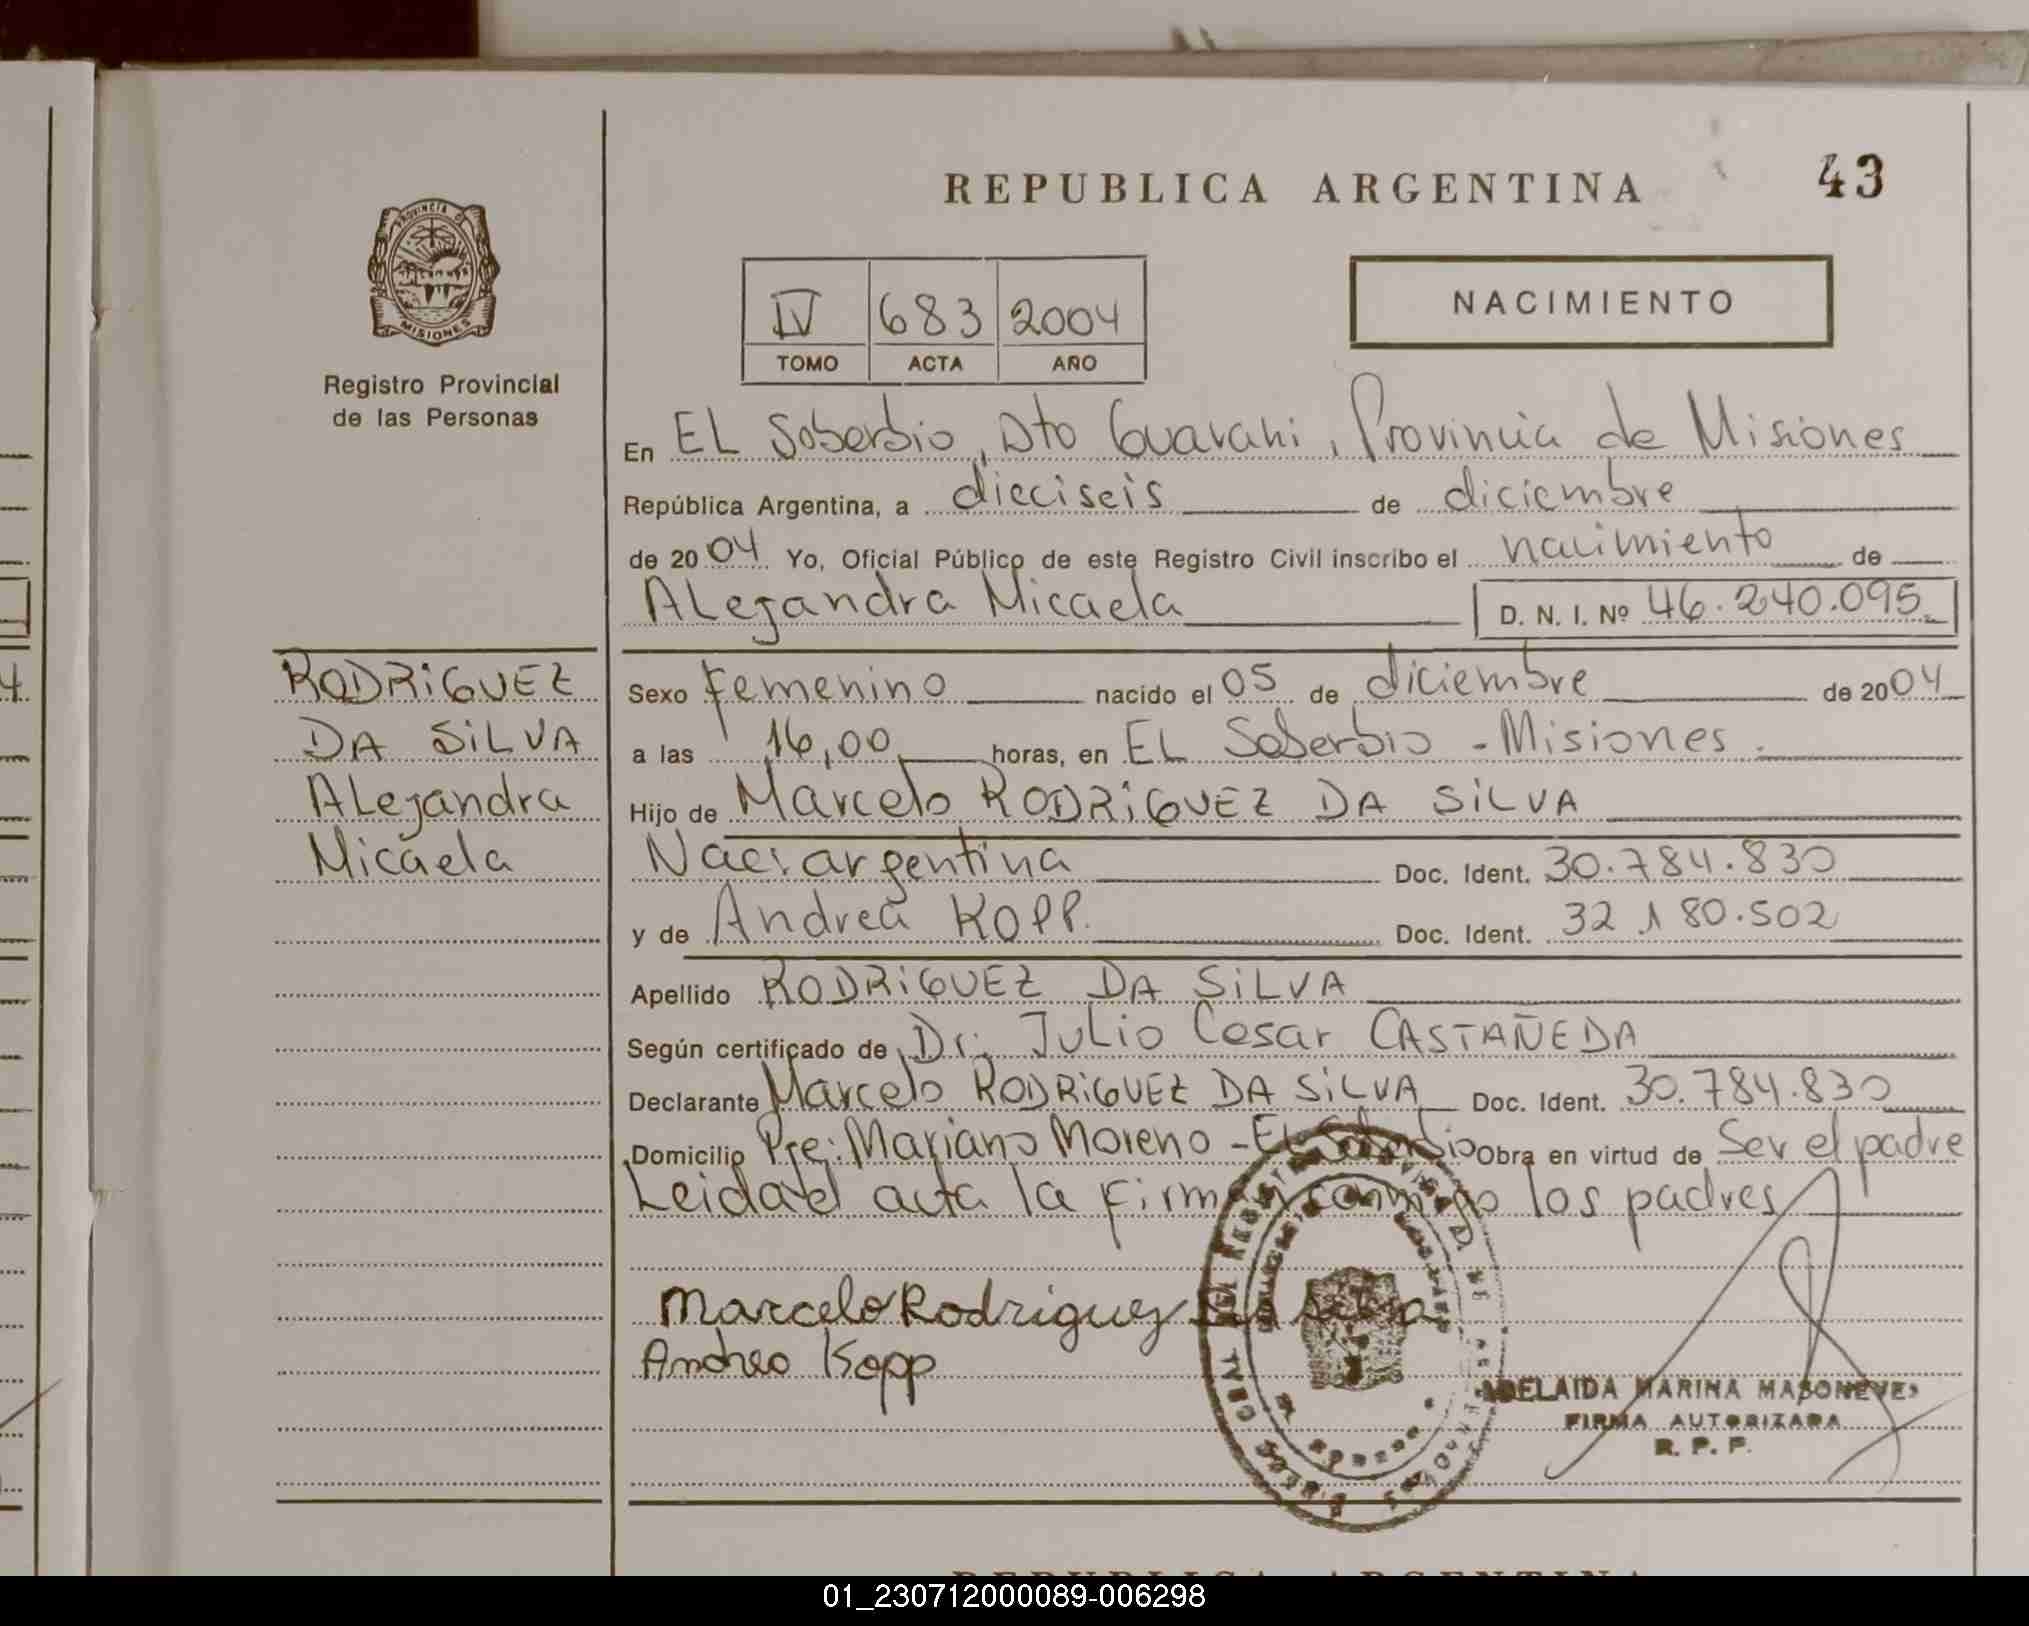 REPUBLICA ARGENTINA
43
PROVINCIA DE
MISIONES
Registro Provincial
de las Personas
IV 683 2004
TOMO ACTA AÑO
NACIMIENTO
En EL Soberbio, Dto Guarani, Provincia de Misiones
República Argentina, a dieciseis de diciembre
de 2004 Yo, Oficial Público de este Registro Civil inscribo el nacimiento de
ALejandra Micaela D. N. I. Nº 46.240.095
RODRiGUEZ
DA SiLVA
ALejandra
Micaela
Sexo Femenino nacido el 05 de diciembre de 2004
a las 16,00 horas, en EL Soberbio - Misiones.
Hijo de Marcelo RODRiGUEZ DA SiLVA
Nac: argentina Doc. Ident. 30.784.830
y de Andrea KOPP. Doc. Ident. 32.180.502
Apellido RODRiGUEZ DA SiLVA
Según certificado de Dr. JuLio Cesar CASTAÑEDA
Declarante Marcelo RODRiGUEZ DA SiLVA Doc. Ident. 30.784.830
Domicilio Pje: Mariano Moreno - EL Soberbio Obra en virtud de Ser el padre
Leida el acta la firman conmigo los padres
Marcelo Rodriguez Da Silva
Andrea Kopp
ADELAIDA MARINA
FIRMA AUTORIZADA
R. P. P.
REPUBLICA ARGENTINA
01_230712000089-006298